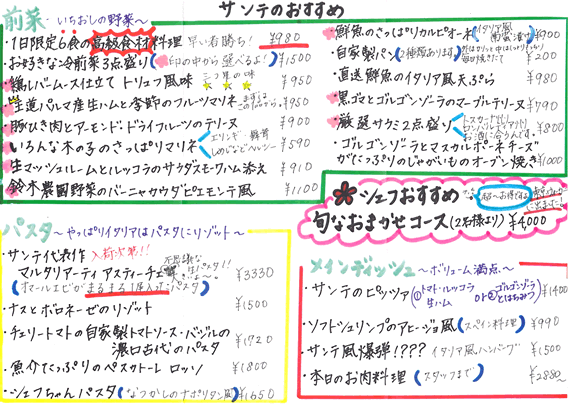 サンテのおすすめ
前菜 〜いちおしの野菜〜
・1日限定6食の高級食材料理 早い者勝ち! ¥980
・お好きな冷前菜3点盛り(印の中から選べるよ!) ¥1500
・鶏レバームース仕立て トリュフ風味 ★★★
・生遅パルマ産生ハムと季節のフルツマリネ ¥1950
・豚ひき肉とアーモンド・ドライフルーツのテリーヌ ¥900
・いろんな木の子のさっぱりマリネ エリンギ・舞茸 しめじなどヘルシー ¥590
・生マッシュルームとルッコラのサラダスモークハム添え ¥910
・鈴木農園野菜のバーニャカウダピエモンテ風 ¥1100
・鮮魚のさっぱりカルピオーネ(イタリア風南蛮漬け) ¥700
・自家製パン(2種類あります) ¥200
・直送鮮魚のイタリア風天ぷら ¥980
・黒ゴマとゴルゴンゾーラのマーブルテリーヌ ¥790
・厳選サラミ2点盛り お酒に合うんです ¥800
・ゴルゴンゾーラとマスカルポーネチーズがたっぷりのじゃがいものオーブン焼き ¥1000
シェフおすすめ
旬なおまかせコース(2名様より) ¥4,000
パスタ 〜やっぱりイタリアはパスタにリゾット〜
・サンテ代表作 入荷次第!!
マルタリアーティ アスティーチェ 不思議な生パスタ!! ¥3330
(オマールエビがまるまる1尾入ったパスタ)
・ナスとボロネーゼのリゾット ¥1500
・チェリートマトの自家製トマトソース・バジルの
濃口古代のパスタ ¥1720
・魚介たっぷりのペスカトーレ ロッソ ¥1800
・シェフちゃんパスタ(なつかしのナポリタン風) ¥1650
メインディッシュ 〜ボリューム満点〜
・サンテのピッツァ(①トマト・ルッコラ 生ハム or② ゴルゴンゾーラとはちみつ) ¥1400
・ソフトシュリンプのアヒージョ風(スペイン料理) ¥990
・サンテ風爆弾!??? イタリア風ハンバーグ ¥1500
・本日のお肉料理(スタッフまで) ¥2880〜